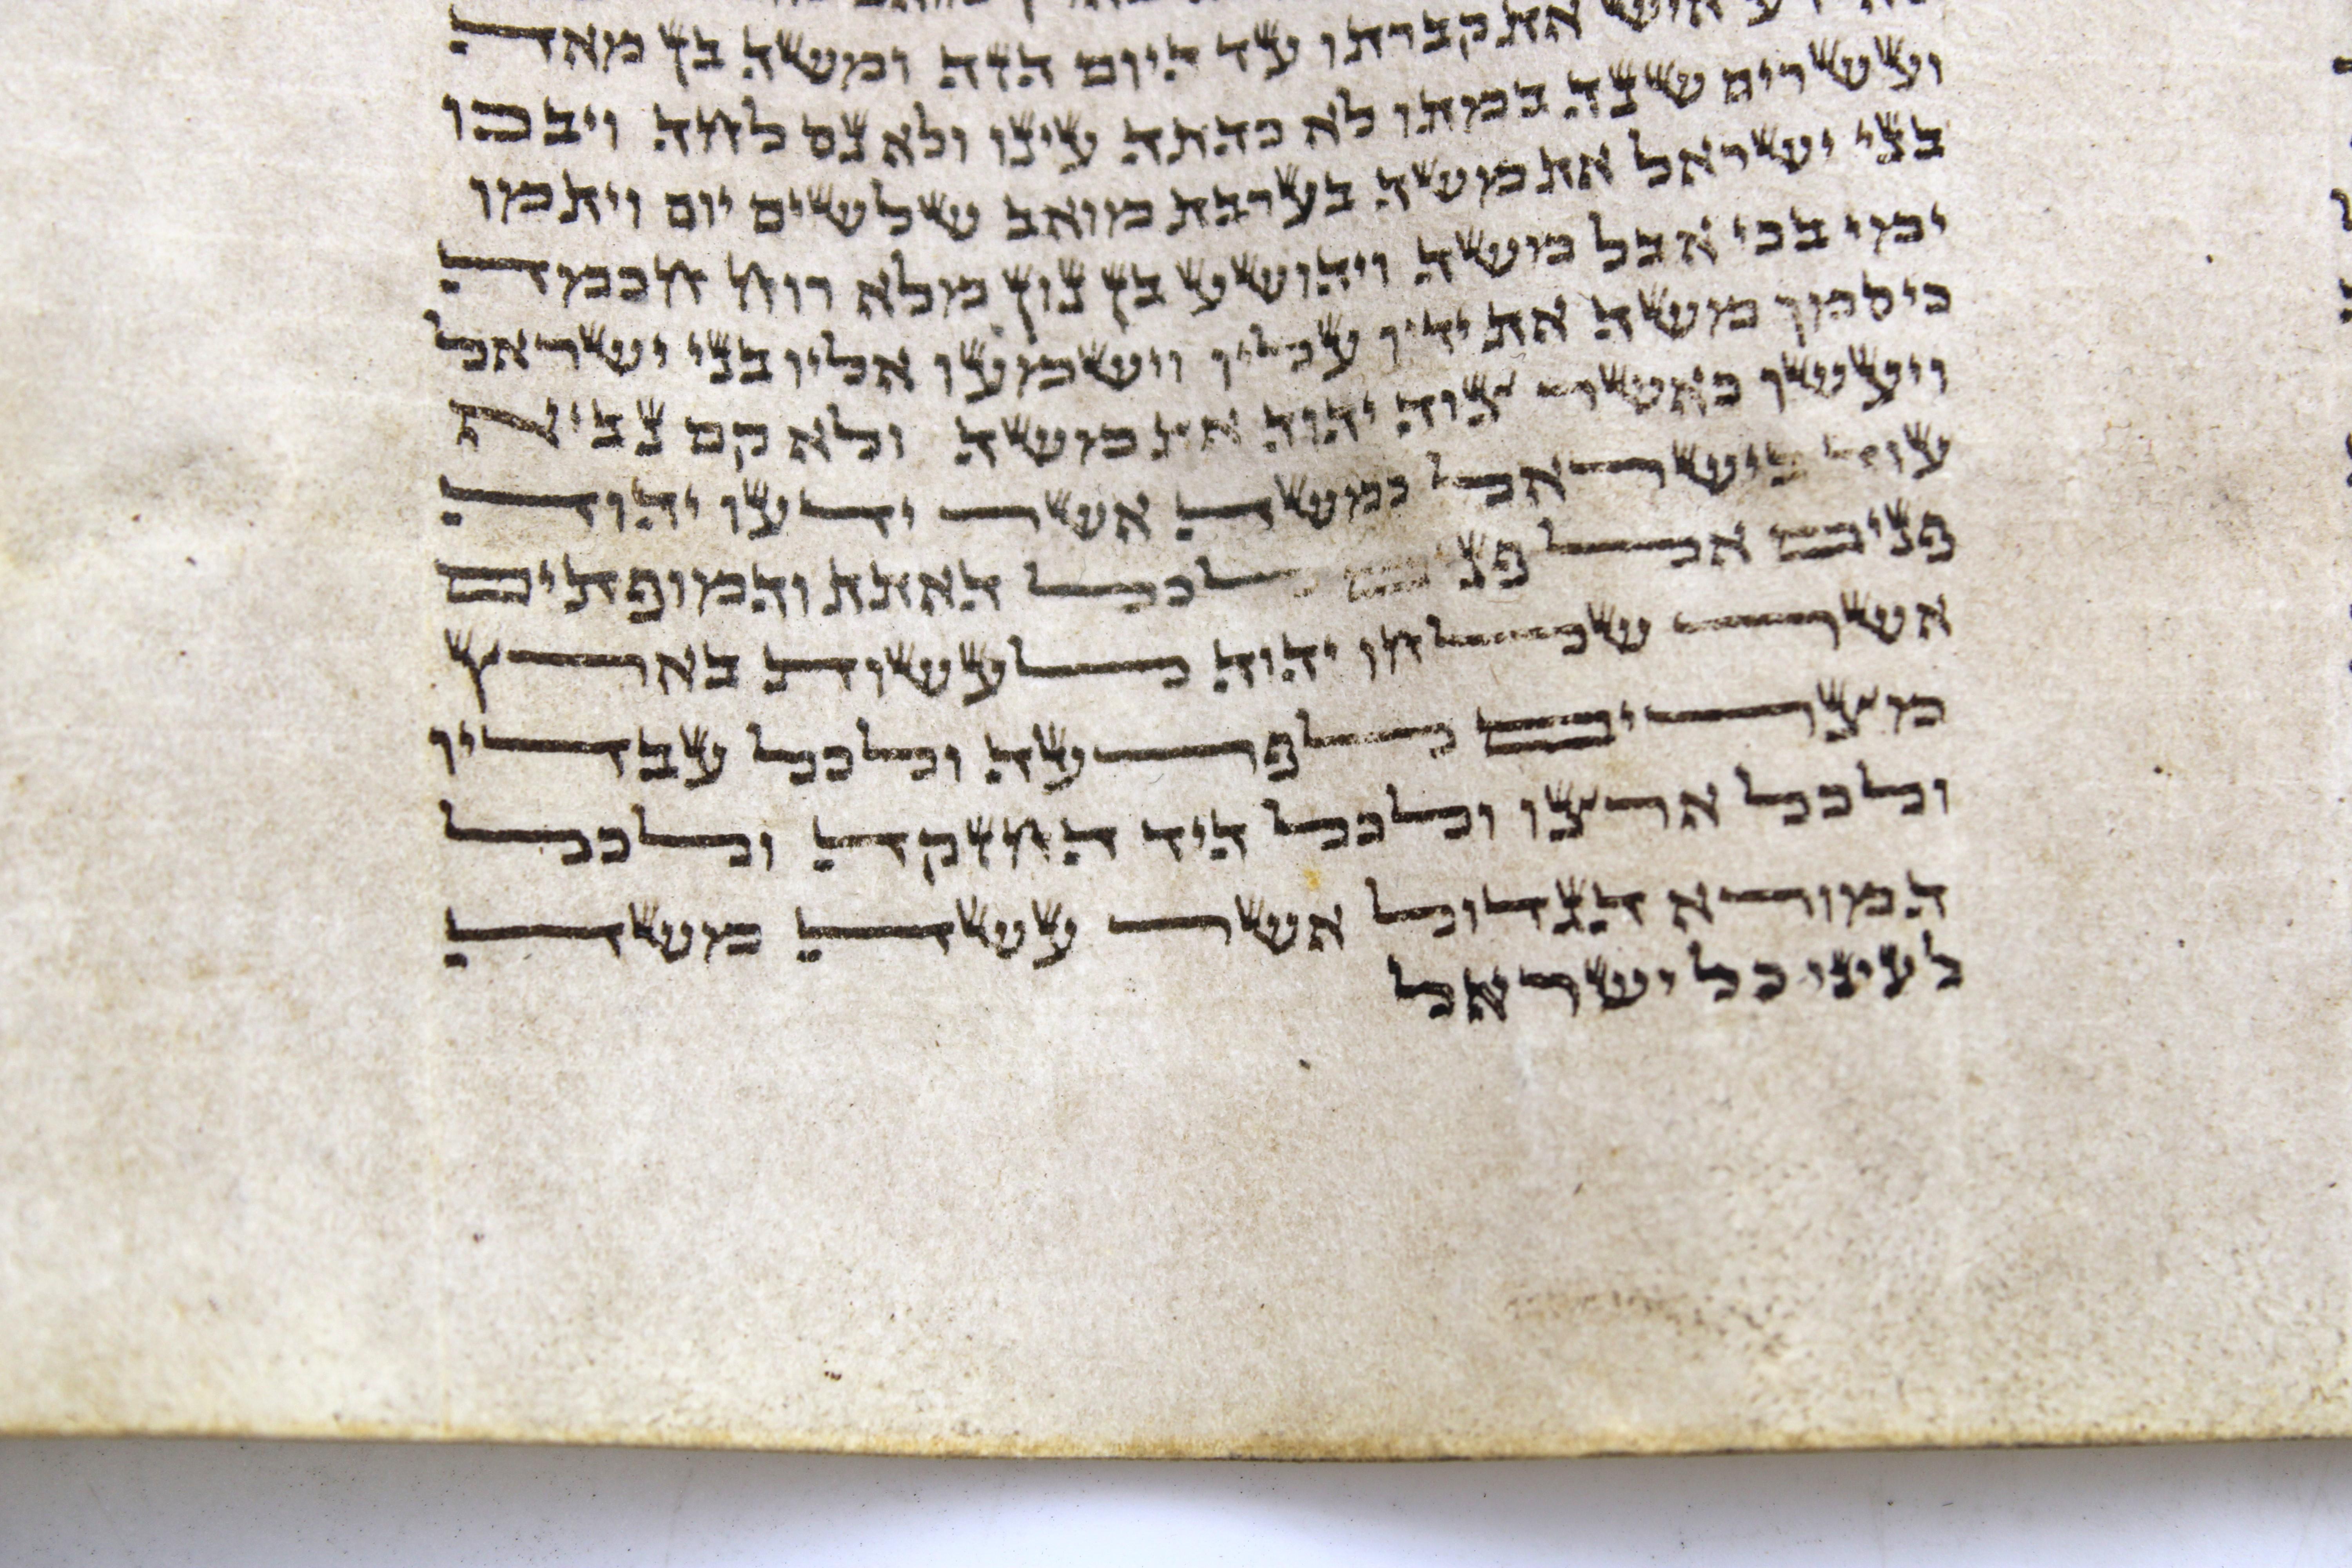 איש את קברתו עד היום הזה ומשה בן מאה
ועשרים שנה במתו לא כהתה עינו ולא נס לחה ויבכו
בני ישראל את משה בערבת מואב שלשים יום ויתמו
ימי בכי אבל משה ויהושע בן נון מלא רוח חכמה
כי סמך משה את ידיו עליו וישמעו אליו בני ישראל
ויעשו כאשר צוה יהוה את משה ולא קם נביא
עוד בישראל כמשה אשר ידעו יהוה
פנים אל פנים לכל האתת והמופתים
אשר שלחו יהוה לעשות בארץ
מצרים לפרעה ולכל עבדיו
ולכל ארצו ולכל היד החזקה ולכל
המורא הגדול אשר עשה משה
לעיני כל ישראל